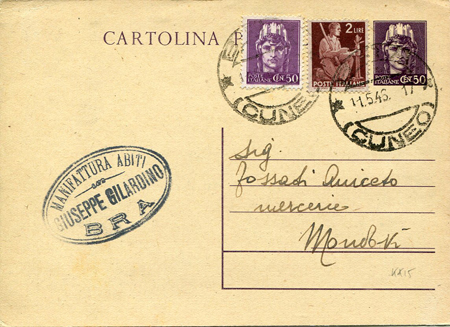 CARTOLINA P
POSTE ITALIANE CEN. 50
2 LIRE
POSTE ITALIANE
POSTE ITALIANE CEN. 50
(CUNEO)
1.5.46. 17
(CUNEO)
MANIFATTURA ABITI
GIUSEPPE GILARDINO
BRA
Sig.
Fossati Aniceto
mercerie
Mondovì